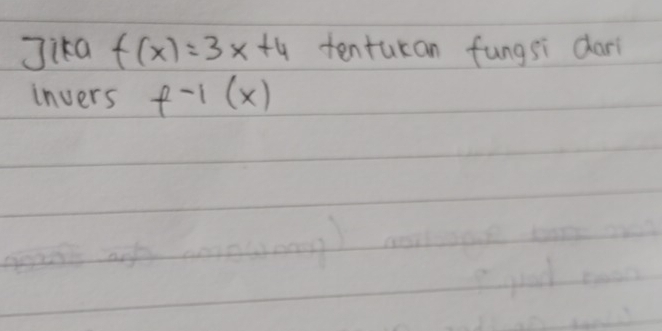 Jika f(x)=3x+4 tentukan fungsi dari
invers f-1 (x)